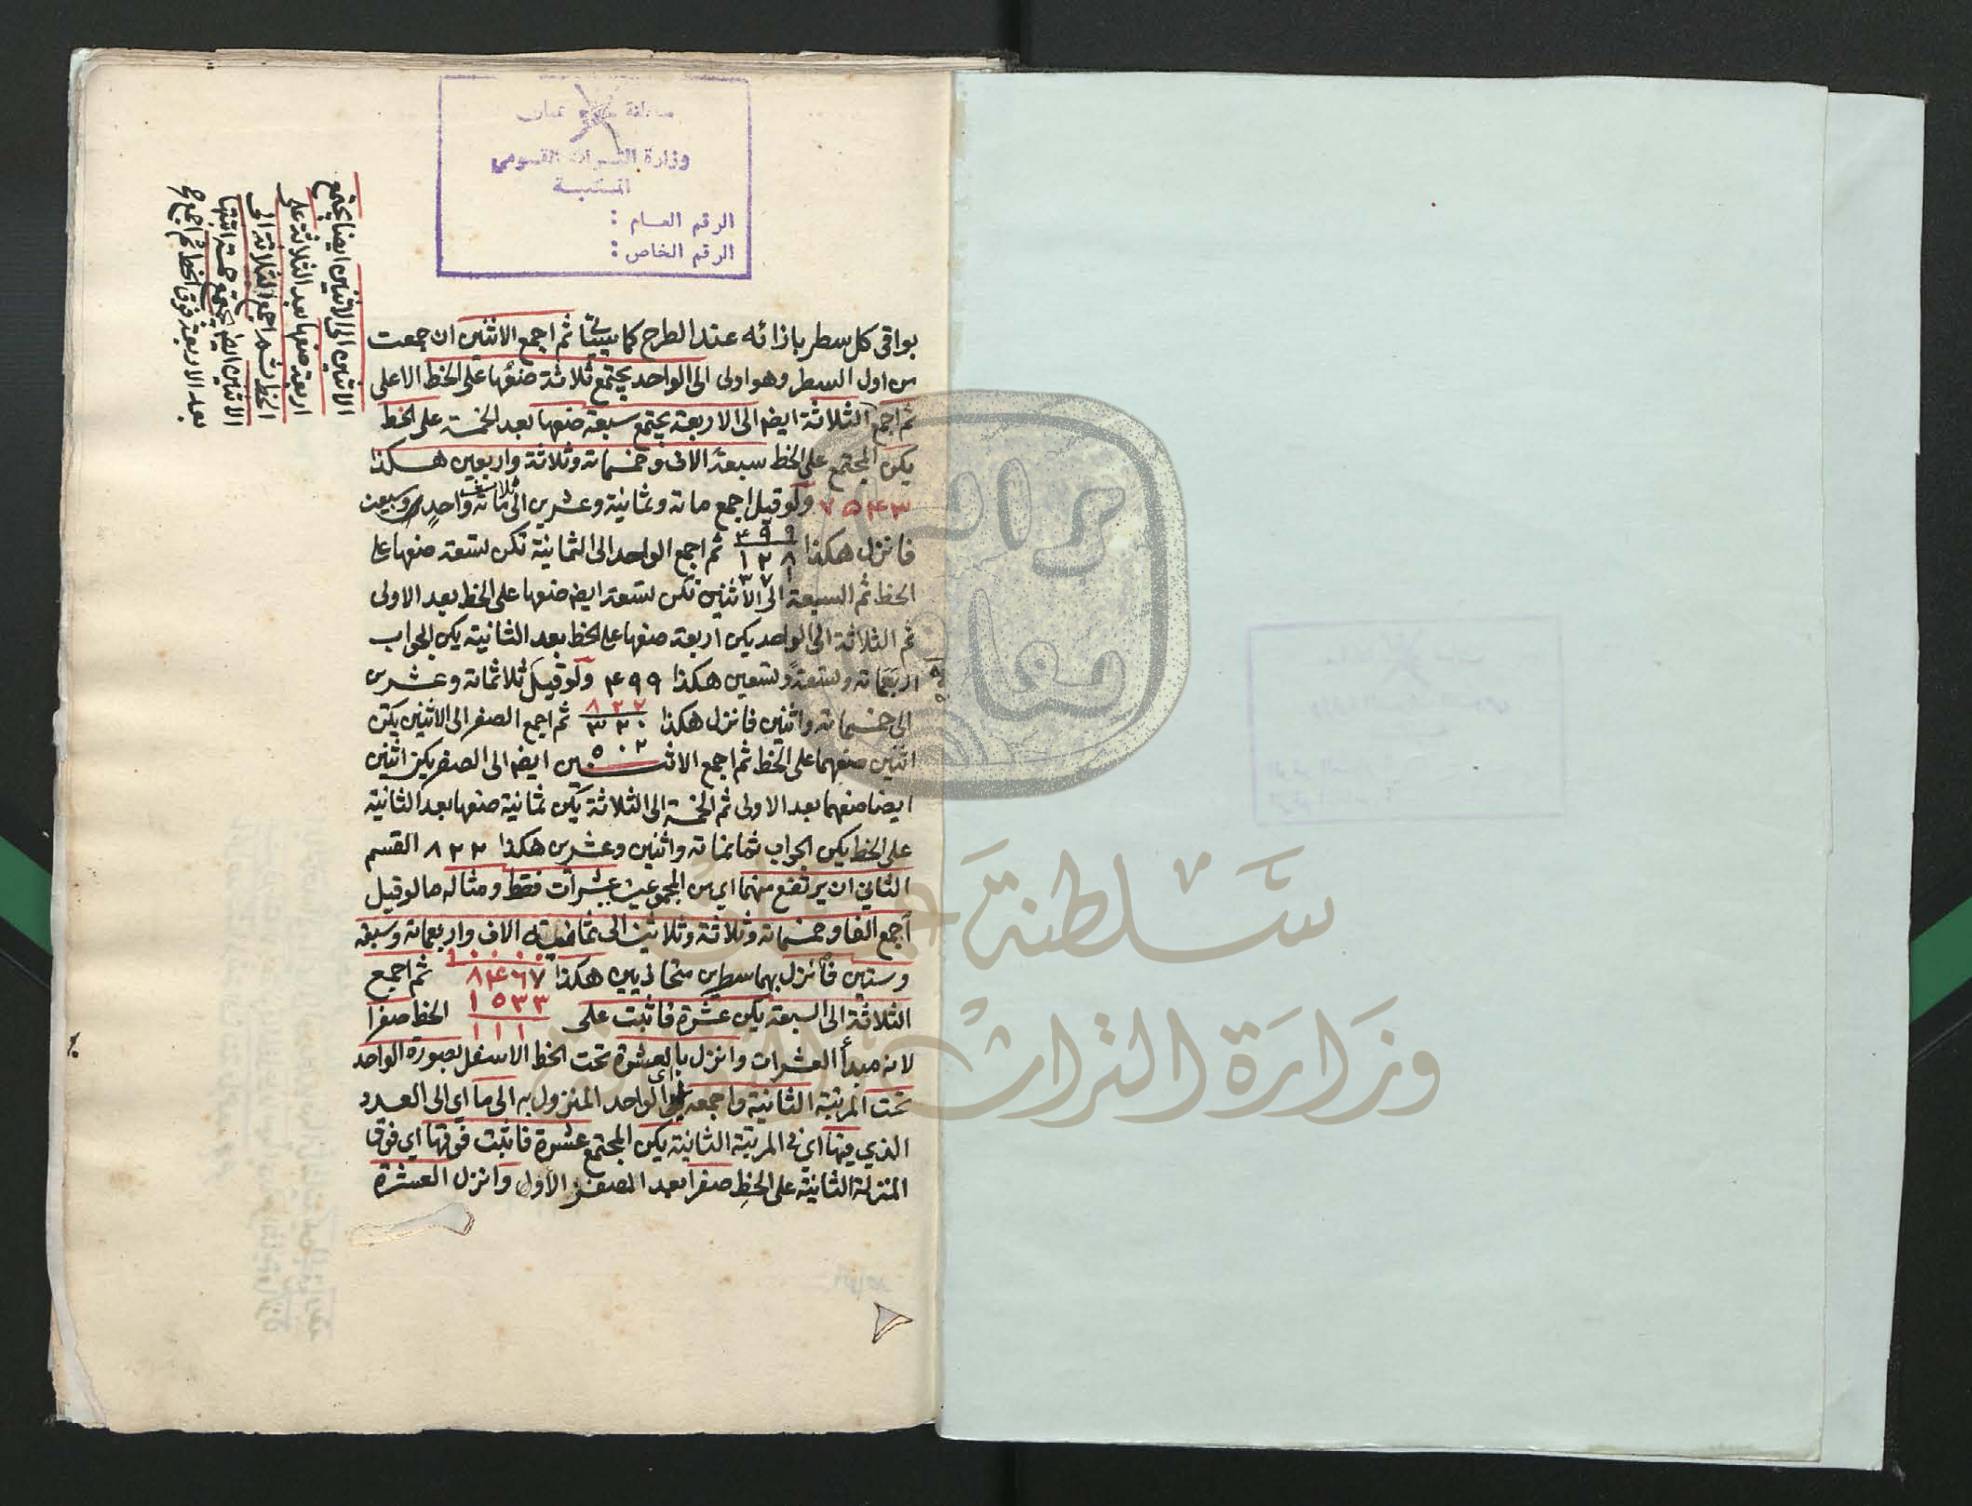 سلطنة عمان
وزارة التراث القومي
المكتبة
الرقم العام :
الرقم الخاص :
بواقي كل سطر بازائه عند الطرح كما سيأتي ثم اجمع الاثنين ان جمعت
من اول السطر وهو اولى الى الواحد يجتمع ثلاثة ضعها على الخط الاعلى
ثم اجمع الثلاثة ايضا الى الاربعة يجتمع سبعة ضعها بعد الخمسة على الخط
يكن المجتمع على الخط سبعة الاف وخمسمائة وثلاثة واربعين هكذا
٧٥٤٣ ولو قيل اجمع مائة وثمانية وعشرين الى ثلاث مائة واحد وسبعين
فانزل هكذا ثم اجمع الواحد الى الثمانية تكن تسعة ضعها على
٤٩٩
١٢٨
٣٧١
الخط ثم السبعة الى الاثنين تكن تسعة ايضا ضعها على الخط بعد الاولى
ثم الثلاثة الى الواحد يكن اربعة ضعها على الخط بعد الثانية يكن الجواب
اربعمائة وتسعة وتسعين هكذا ٤٩٩ ولو قيل ثلاثمائة وعشرين
الى خمسمائة واثنين فانزل هكذا ثم اجمع الصفر الى الاثنين يكن
٨٢٢
٣٢٠
٥٠٢
اثنين ضعهما على الخط ثم اجمع الاثنين ايضا الى الصفر يكن اثنين
ايضا ضعهما بعد الاولى ثم الخمسة الى الثلاثة يكن ثمانية ضعها بعد الثانية
على الخط يكن الجواب ثمانمائة واثنين وعشرين هكذا ٨٢٢ القسم
الثاني ان يرتفع منهما اي من المجموعين عشرات فقط ومثاله ما لو قيل
اجمع الفا وخمسمائة وثلاثة وثلاثين الى ثمانية الاف واربعمائة وسبعة
وستين فانزل بهما سطرين متحاذيين هكذا ثم اجمع
١٠٠٠٠
٨٤٦٧
١٥٣٣
١١١
الثلاثة الى السبعة يكن عشرة فاثبت على الخط صفرا
لانه مبدأ العشرات وانزل بالعشرة تحت الخط الاسفل بصورة الواحد
تحت المرتبة الثانية واجمعه اي الواحد المنزول به الى ما اي الى العدد
الذي فيها اي في المرتبة الثانية يكن المجتمع عشرة فاثبت فوقها اي فوق
المنزلة الثانية على الخط صفرا بعد الصفر الاول وانزل العشرة
الاثنين الى الاثنين ايضا يجتمع
اربعة ضعها بعد الثلاثة على
الخط ثم اجمع الثلاثة الى
الاثنين ايضا يجتمع خمسة اثبتها
بعد الاربعة فوق الخط ثم اجمع
سلطنة عمان
وزارة التراث